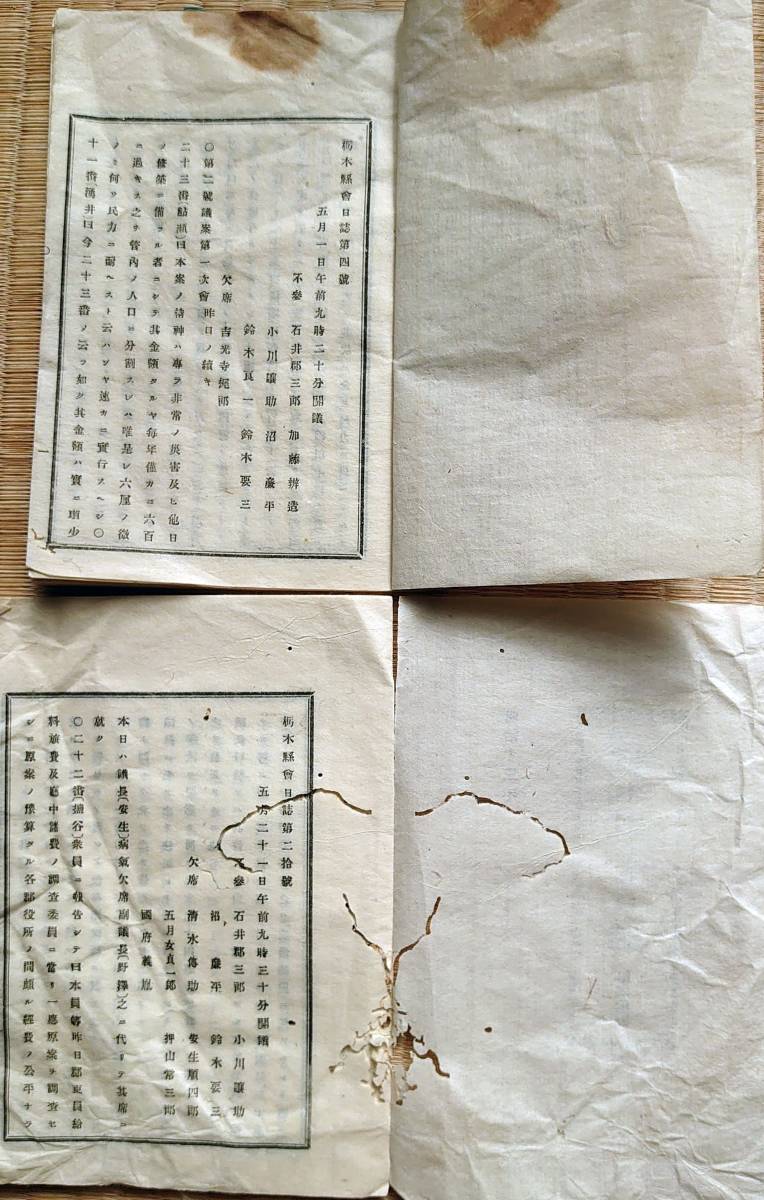 栃木縣會日誌第四號
五月一日午前九時二十分開議
不參 石井郡三郎 加藤辨造
小川讓助 沼 慶平
鈴木良一 鈴木要三
欠席 吉光寺
〇第二號議案第一次會昨日ノ續キ
二十三番(鮎瀬)曰本案ノ精神ハ專ラ非常ノ災害及ヒ他日
ノ修築ニ備フル者ニシテ其金額タルヤ毎年僅カニ六百
ニ過キス之ヲ管內ノ人口ニ分割スレハ唯是レ六厘ノ微
ノミ何ソ民力ニ耐ヘスト云ハンヤ速カニ實行スヘシ〇
十一番(湧井)曰今二十三番ノ云フ如ク其金額ハ實ニ
栃木縣會日誌第二拾號
五月二十一日午前九時三十分開議
不參 石井郡三郎 小川讓助
沼 慶平 鈴木要三
欠席 清水傳助 安生順四郎
五月女貞一郎 押山常三郎
國府義胤
本日ハ議長(安生)病氣欠席副議長(野澤)之ニ代リテ其席ニ
就ク
〇二十二番 衆員ニ報告シテ曰本員等昨日郡吏員給
料旅費及廳中諸費ノ調査委員ニ當リ一應原案ヲ調査セ
シニ原案ノ豫算タル各郡役所ノ間頗ル經費ノ公平ナラ